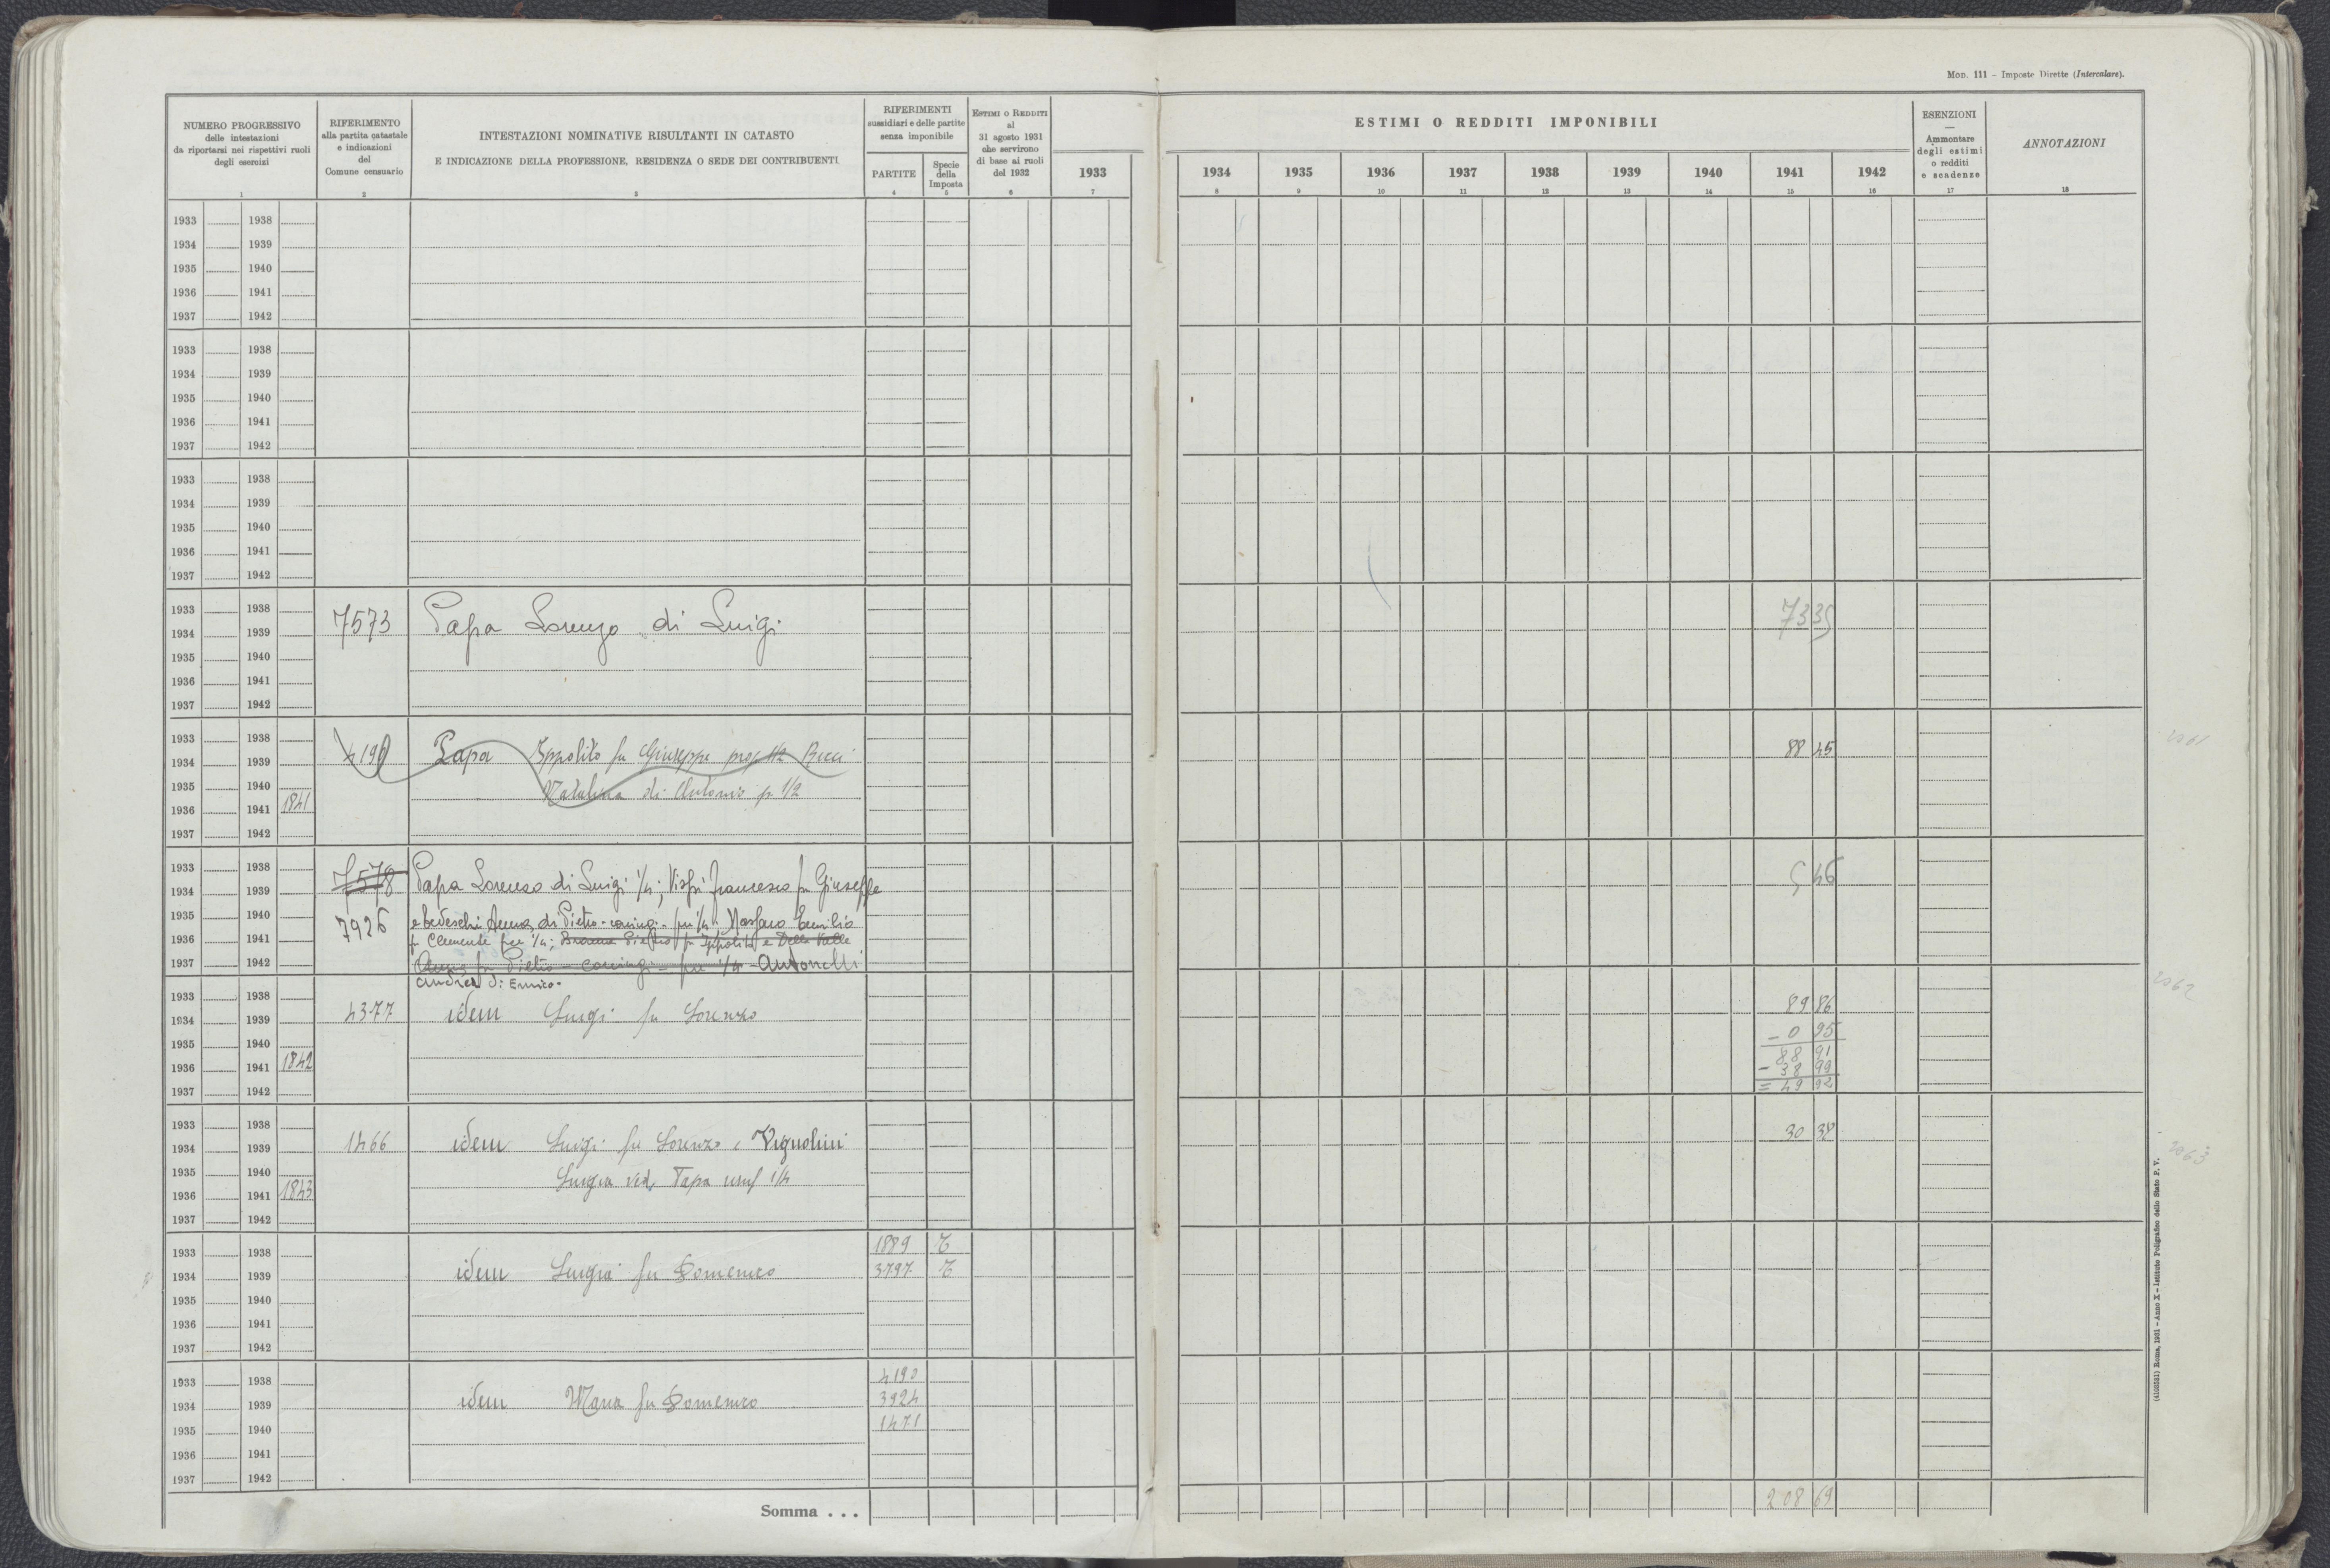 Mod. 111 - Imposte Dirette (Intercalare).
NUMERO PROGRESSIVO
delle intestazioni
da riportarsi nei rispettivi ruoli
degli esercizi
1
RIFERIMENTO
alla partita catastale
e indicazioni
del
Comune censuario
2
INTESTAZIONI NOMINATIVE RISULTANTI IN CATASTO
E INDICAZIONE DELLA PROFESSIONE, RESIDENZA O SEDE DEI CONTRIBUENTI
3
RIFERIMENTI
sussidiari e delle partite
senza imponibile
PARTITE
4
Specie
della
Imposta
5
Estimi o Redditi
al
31 agosto 1931
che servirono
di base ai ruoli
del 1932
6
1933
7
ESTIMI O REDDITI IMPONIBILI
1934 1935 1936 1937 1938 1939 1940 1941 1942
8 9 10 11 12 13 14 15 16
ESENZIONI
—
Ammontare
degli estimi
o redditi
e scadenze
17
ANNOTAZIONI
18
1933 1938
1934 1939
1935 1940
1936 1941
1937 1942
1933 1938
1934 1939
1935 1940
1936 1941
1937 1942
1933 1938
1934 1939
1935 1940
1936 1941
1937 1942
1933 1938
1934 1939 7573 Papa Lorenzo di Luigi 73 35
1935 1940
1936 1941
1937 1942
1933 1938
1934 1939 4190 Papa Ippolito fu Giuseppe prop 1/2 Ricci 88 45 2061
1935 1940
Natalina di Antonio p 1/2
1936 1941 1841
1937 1942
1933 1938 7578
1934 1939 Papa Lorenzo di Luigi 1/4; Vispi Francesco fu Giuseppe 5 46
1935 1940 7926 e Tedeschi Anna di Pietro - coniugi - per 1/4 Emilio
1936 1941 fu Clemente per 1/4; Pietro fu Ippolito e Della Valle
1937 1942 Anna fu Pietro - coniugi - per 1/4 - Antonelli
Andrea di Enrico.
1933 1938 89 86 2062
1934 1939 4377 idem Luigi fu Lorenzo
- 0 95
1935 1940 88 91
1936 1941 1842 - 38 99
1937 1942 = 49 92
1933 1938
1934 1939 1466 idem Luigi fu Lorenzo e Vignolini 30 38 2063
1935 1940
Luigia ved. Papa usuf 1/4
1936 1941 1843
1937 1942
1933 1938 1889 T
1934 1939 idem Luigia fu Domenico 3797 T
1935 1940
1936 1941
1937 1942
1933 1938 4190
1934 1939 idem Maria fu Domenico 3924
1935 1940 1471
1936 1941
1937 1942
Somma . . . 208 69
(4103581) Roma, 1931 - Anno X - Istituto Poligrafico dello Stato P. V.